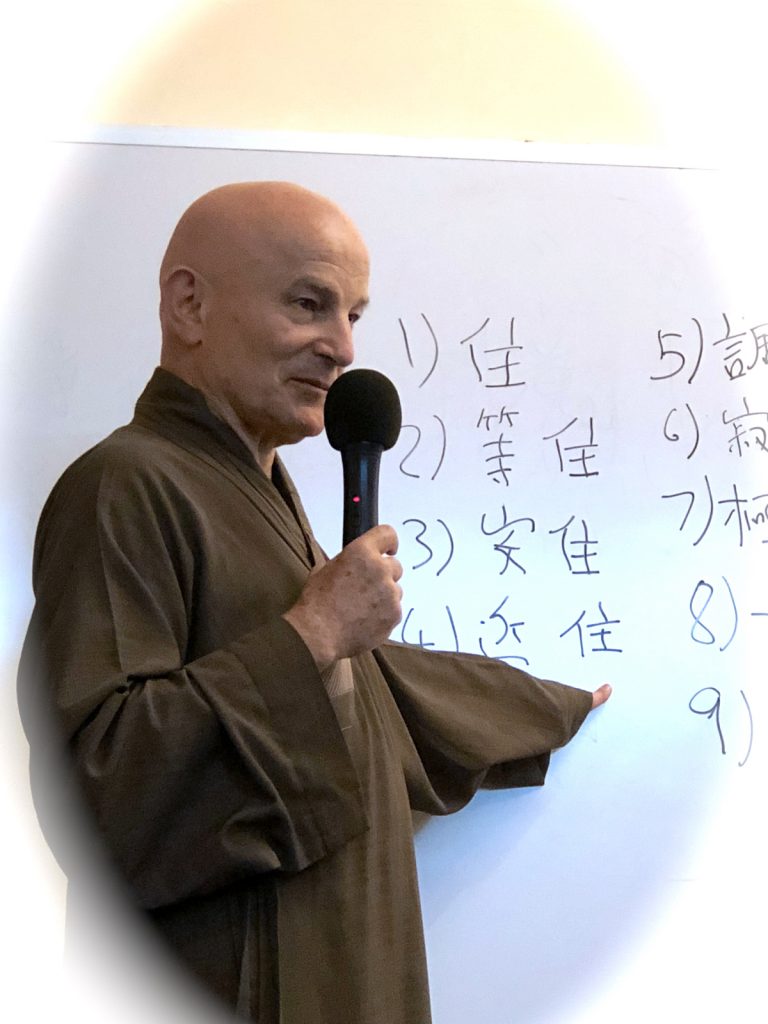 1) 住
2) 等住
3) 安住
4) 近住
5) 調
6) 寂
7) 極
8)
9)